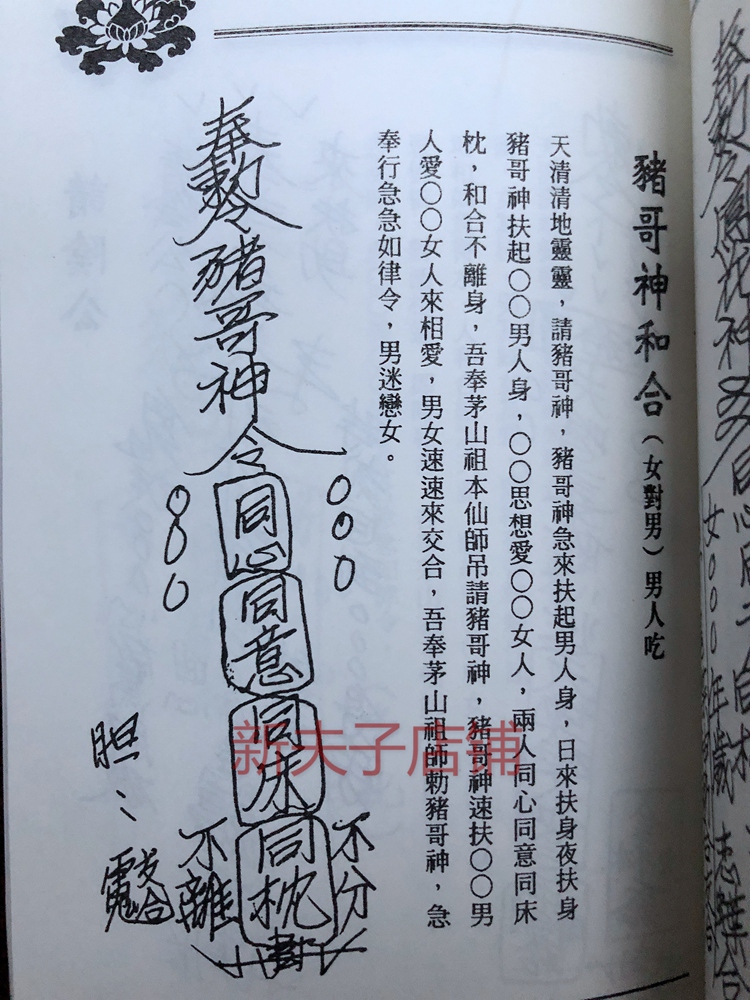 豬哥神和合（女對男）男人吃
天清清地靈靈，請豬哥神，豬哥神急來扶起男人身，日來扶身夜扶身
豬哥神扶起○○男人身，○○思想愛○○女人，兩人同心同意同床
枕，和合不離身，吾奉茅山祖本仙師吊請豬哥神，豬哥神速扶○○男
人愛○○女人來相愛，男女速速來交合，吾奉茅山祖師勅豬哥神，急
奉行急急如律令，男迷戀女。
奉勅令豬哥神令
○○○
○○○
同心
同意
同床
同枕
不分
不離
胆
新夫子店铺